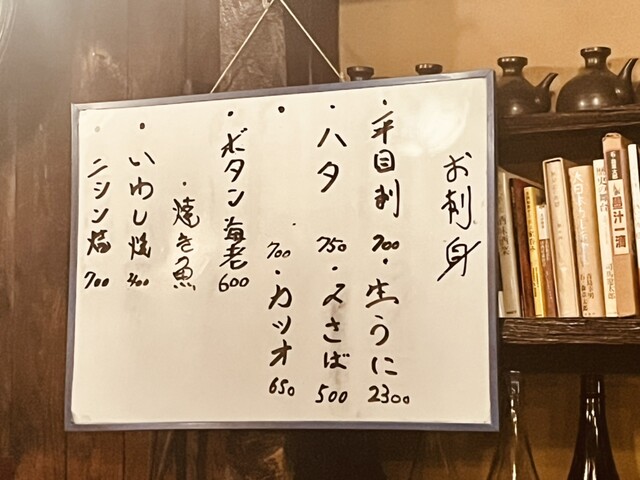 お刺身
・平目刺 700 ・生うに 2300
・ハタ 750 ・〆さば 500
・ 700 ・カツオ 650
・ボタン海老 600
・焼き魚
・いわし焼 400
・ニシン焼 700
墨汁一滴
司馬遼太郎